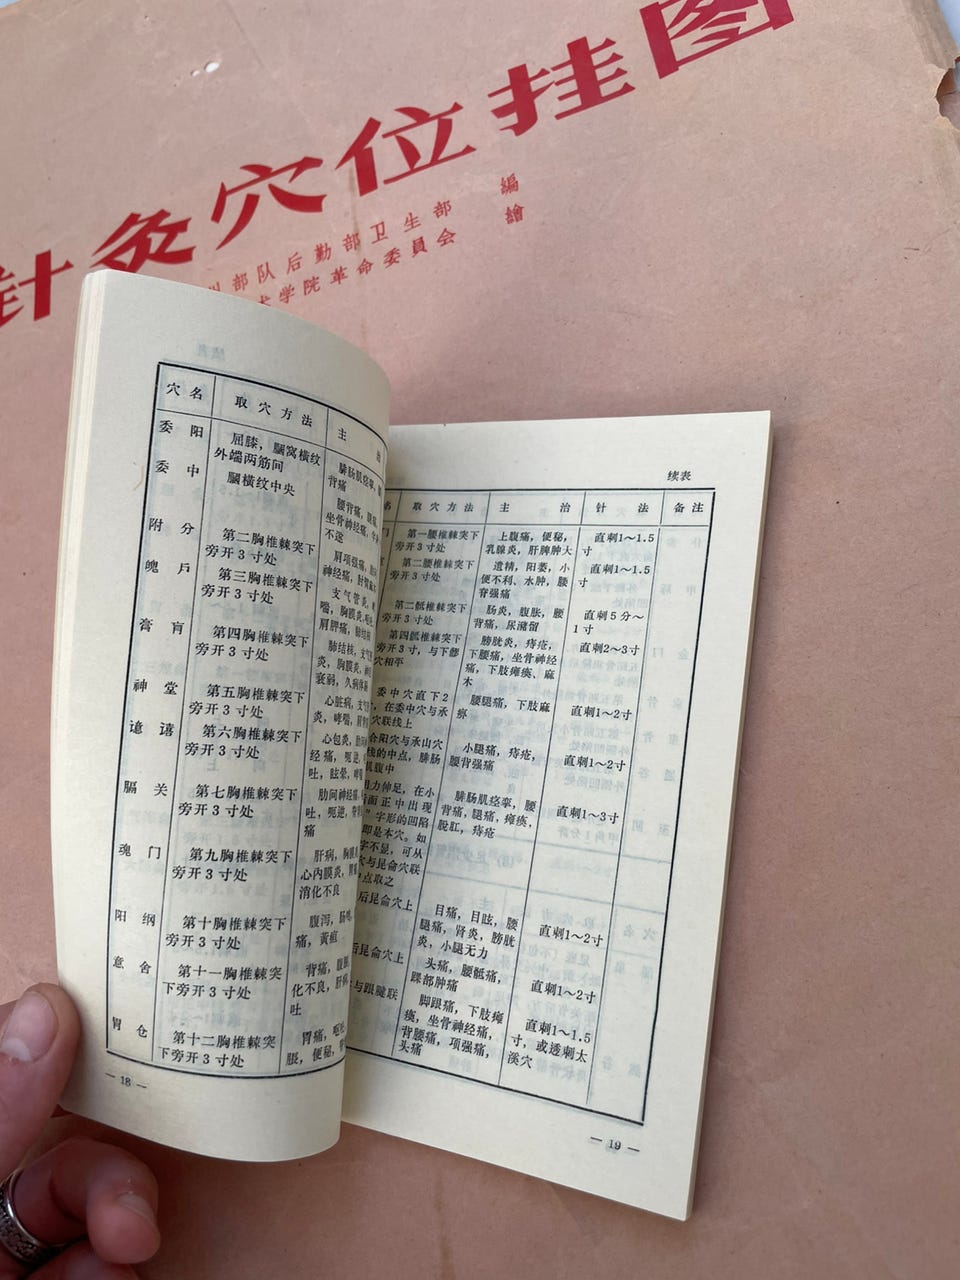 针灸穴位挂图
部队后勤部卫生部
编
术学院革命委員会
繪
穴名 取穴方法 主治
委阳 屈膝，腘窝横纹
外端两筋间 腓肠肌痉挛，
背痛
委中 腘横纹中央 腰背痛，
坐骨神经痛，
不遂
附分 第二胸椎棘突下
旁开3寸处 肩项强痛，
神经痛，肘臂
魄户 第三胸椎棘突下
旁开3寸处 支气管炎，
喘，胸膜炎，
肩胛痛，
膏肓 第四胸椎棘突下
旁开3寸处 肺结核，支气
炎，胸膜炎，
衰弱，久病体
神堂 第五胸椎棘突下
旁开3寸处 心脏病，支气
炎，哮喘，
谚禧 第六胸椎棘突下
旁开3寸处 心包炎，
经痛，呃逆，
吐，眩晕，哮
膈关 第七胸椎棘突下
旁开3寸处 肋间神经痛，
吐，呃逆，
痛
魂门 第九胸椎棘突下
旁开3寸处 肝病，胸膜
心内膜炎，胃
消化不良
阳纲 第十胸椎棘突下
旁开3寸处 腹泻，肠
痛，黄疸
意舍 第十一胸椎棘突
下旁开3寸处 背痛，腹
化不良，肝
吐
胃仓 第十二胸椎棘突
下旁开3寸处 胃痛，呕
胀，便秘，
— 18 —
续表
名 取穴方法 主治 针法 备注
门 第一腰椎棘突下
旁开3寸处 上腹痛，便秘，
乳腺炎，肝脾肿大 直刺1～1.5
寸
第二腰椎棘突下
旁开3寸处 遗精，阳萎，小
便不利、水肿，腰
脊强痛 直刺1～1.5
寸
第二骶椎棘突下
旁开3寸处 肠炎，腹胀，腰
背痛，尿潴留 直刺5分～
1寸
第四骶椎棘突下
旁开3寸，与下髎
穴相平 膀胱炎，痔疮，
下腰痛，坐骨神经
痛，下肢瘫痪、麻
木 直刺2～3寸
委中穴直下2
寸，在委中穴与承
穴联线上 腰腿痛，下肢麻
痹 直刺1～2寸
合阳穴与承山穴
线的中点，腓肠
肌腹中 小腿痛，痔疮，
腰背强痛 直刺1～2寸
用力伸足，在小
后面正中出现
”字形的凹陷
即是本穴。如
字不显，可从
穴与昆侖穴联
中点取之 腓肠肌痉挛，腰
背痛，腿痛，瘫痪，
脱肛，痔疮 直刺1～3寸
后昆侖穴上 目痛，目眩，腰
腿痛，肾炎，膀胱
炎，小腿无力 直刺1～2寸
后昆侖穴上 头痛，腰骶痛，
踝部肿痛 直刺1～2寸
与跟腱联 脚跟痛，下肢瘫
痪，坐骨神经痛，
背腰痛，项强痛，
头痛 直刺1～1.5
寸，或透刺太
溪穴
— 19 —